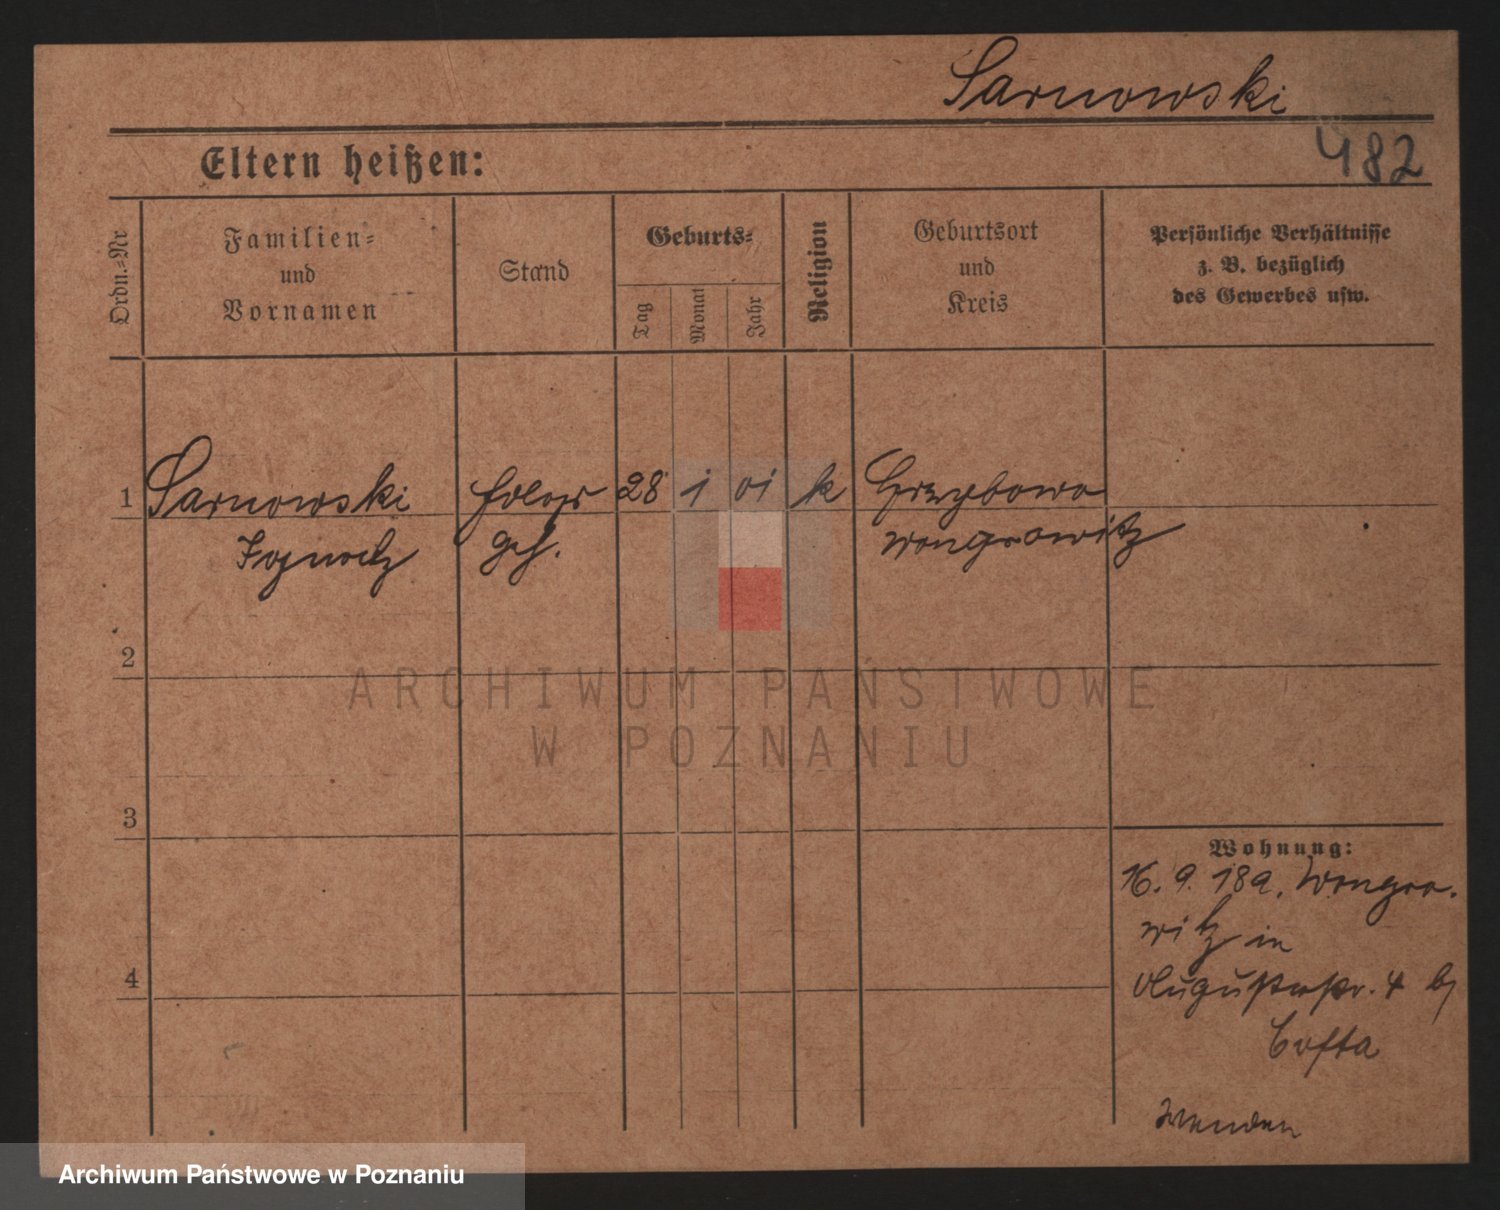 Sarnowski
482
Eltern heißen:
Ordn.-Nr
Familien-
und
Vornamen
Stand
Geburts-
Tag
Monat
Jahr
Religion
Geburtsort
und
Kreis
Persönliche Verhältnisse
z. B. bezüglich
des Gewerbes usw.
1 Sarnowski 28 1 01 k Grzybowo
Ignatz geh. Wongrowitz
2
ARCHIWUM PAŃSTWOWE
W POZNANIU
3
Wohnung:
16. 9. 18 a. Wongro-
witz in
Augustastr. 4 b/
4
Wenden
Archiwum Państwowe w Poznaniu